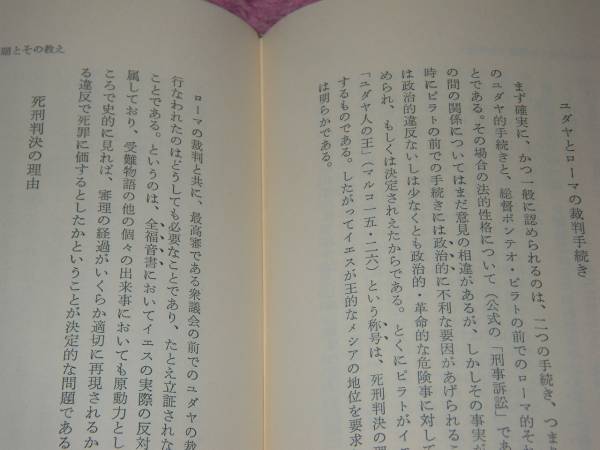 ユダヤとローマの裁判手続き
まず確実に、かつ一般に認められるのは、二つの手続き、つま
のユダヤ的手続きと、総督ポンテオ・ピラトの前でのローマ的それ
とである。その場合の法的性格について（公式の「刑事訴訟」であ
の間の関係についてはまだ意見の相違があるが、しかしその事実が
時にピラトの前での手続きには政治的に不利な要因があげられるこ
は政治的違反ないしは少なくとも政治的・革命的な危険事に対して
められ、もしくは決定されえたからである。とくにピラトがイエ
「ユダヤ人の王」（マルコ一五・二六）という称号は、死刑判決の理
するものである。したがってイエスが王的なメシアの地位を要求
は明らかである。
ローマの裁判と共に、最高審である衆議会の前でのユダヤの裁
行なわれたのはどうしても必要なことであり、たとえ立証されな
ことである。というのは、全福音書においてイエスの実際の反対
属しており、受難物語の他の個々の出来事においても原動力とし
ころで史的に見れば、審理の経過がいくらか適切に再現されるか
る違反で死罪に価するとしたかということが決定的な問題である
死刑判決の理由
題とその教え